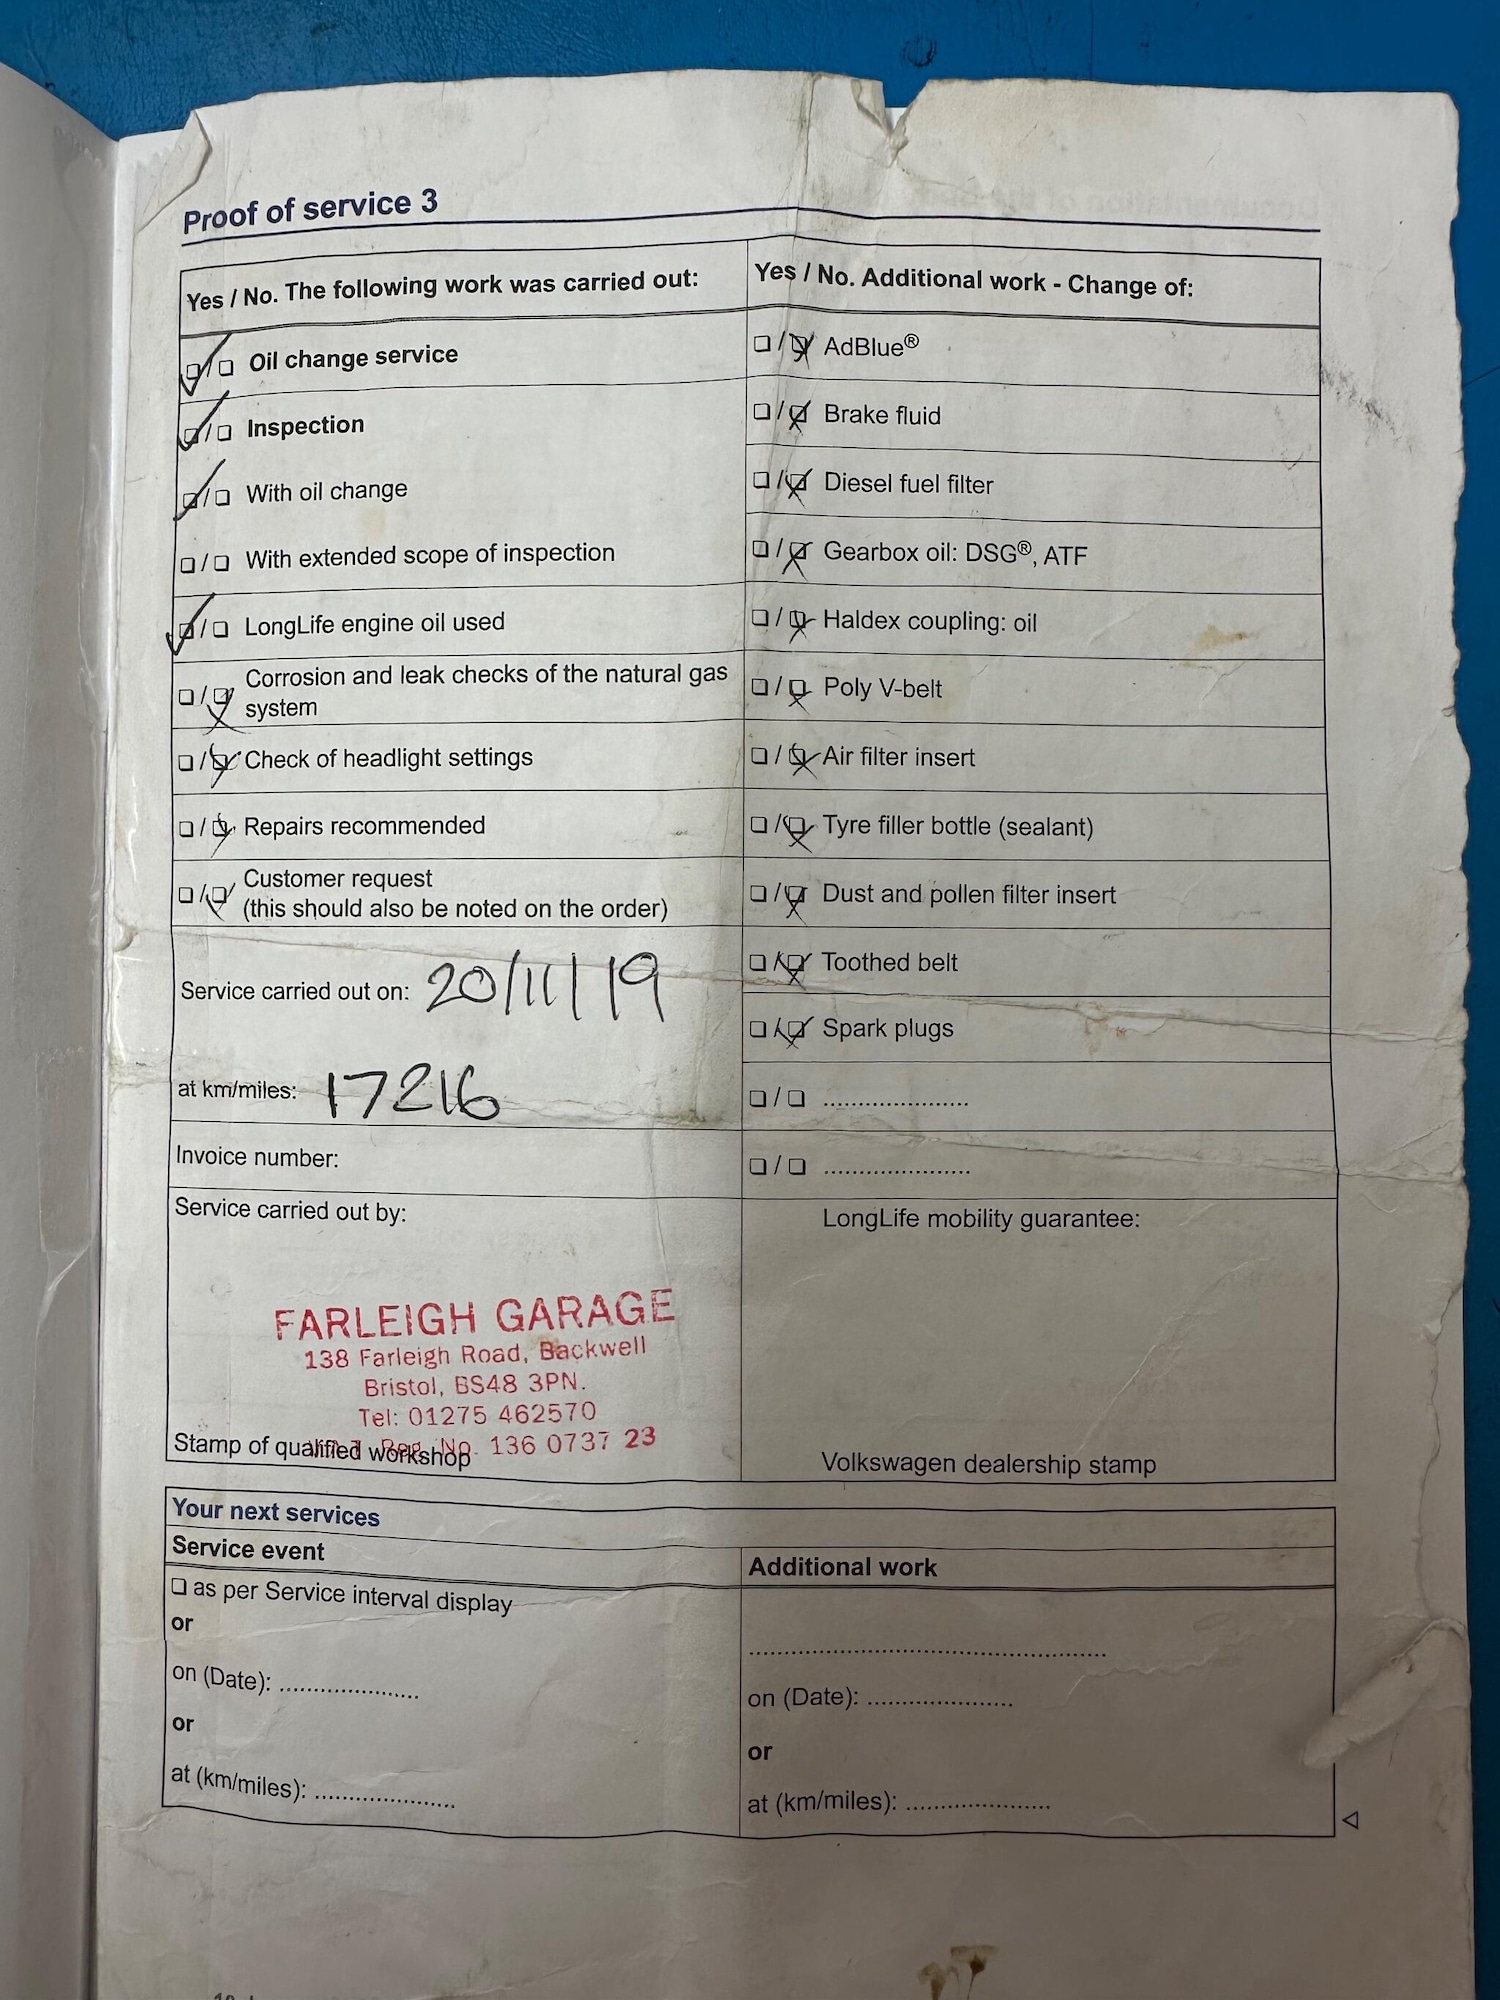 Proof of service 3
Yes / No. The following work was carried out:
☑ / ☐ Oil change service
☑ / ☐ Inspection
☑ / ☐ With oil change
☐ / ☐ With extended scope of inspection
☑ / ☐ LongLife engine oil used
☐ / ☒ Corrosion and leak checks of the natural gas
system
☐ / ☒ Check of headlight settings
☐ / ☒ Repairs recommended
☐ / ☒ Customer request
(this should also be noted on the order)
Service carried out on: 20/11/19
at km/miles: 17216
Invoice number:
Service carried out by:
FARLEIGH GARAGE
138 Farleigh Road, Backwell
Bristol, BS48 3PN.
Tel: 01275 462570
Reg. No. 136 0737 23
Stamp of qualified workshop
Yes / No. Additional work - Change of:
☐ / ☒ AdBlue®
☐ / ☒ Brake fluid
☐ / ☒ Diesel fuel filter
☐ / ☒ Gearbox oil: DSG®, ATF
☐ / ☒ Haldex coupling: oil
☐ / ☒ Poly V-belt
☐ / ☒ Air filter insert
☐ / ☒ Tyre filler bottle (sealant)
☐ / ☒ Dust and pollen filter insert
☐ / ☒ Toothed belt
☐ / ☒ Spark plugs
☐ / ☐ .....................
☐ / ☐ .....................
LongLife mobility guarantee:
Volkswagen dealership stamp
Your next services
Service event
☐ as per Service interval display
or
on (Date): ....................
or
at (km/miles): ....................
Additional work
....................................................
on (Date): .....................
or
at (km/miles): .....................